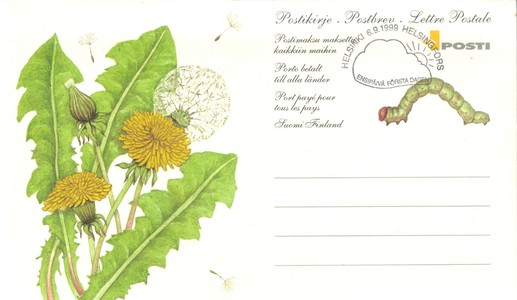 Postikirje . Postbrev . Lettre Postale
Postimaksu maksettu
kaikkiin maihin
Porto betalt
till alla länder
Port payé pour
tous les pays
Suomi Finland
HELSINKI 6.9.1999 HELSINGFORS
ENSIPÄIVÄ FÖRSTA DAGEN
POSTI